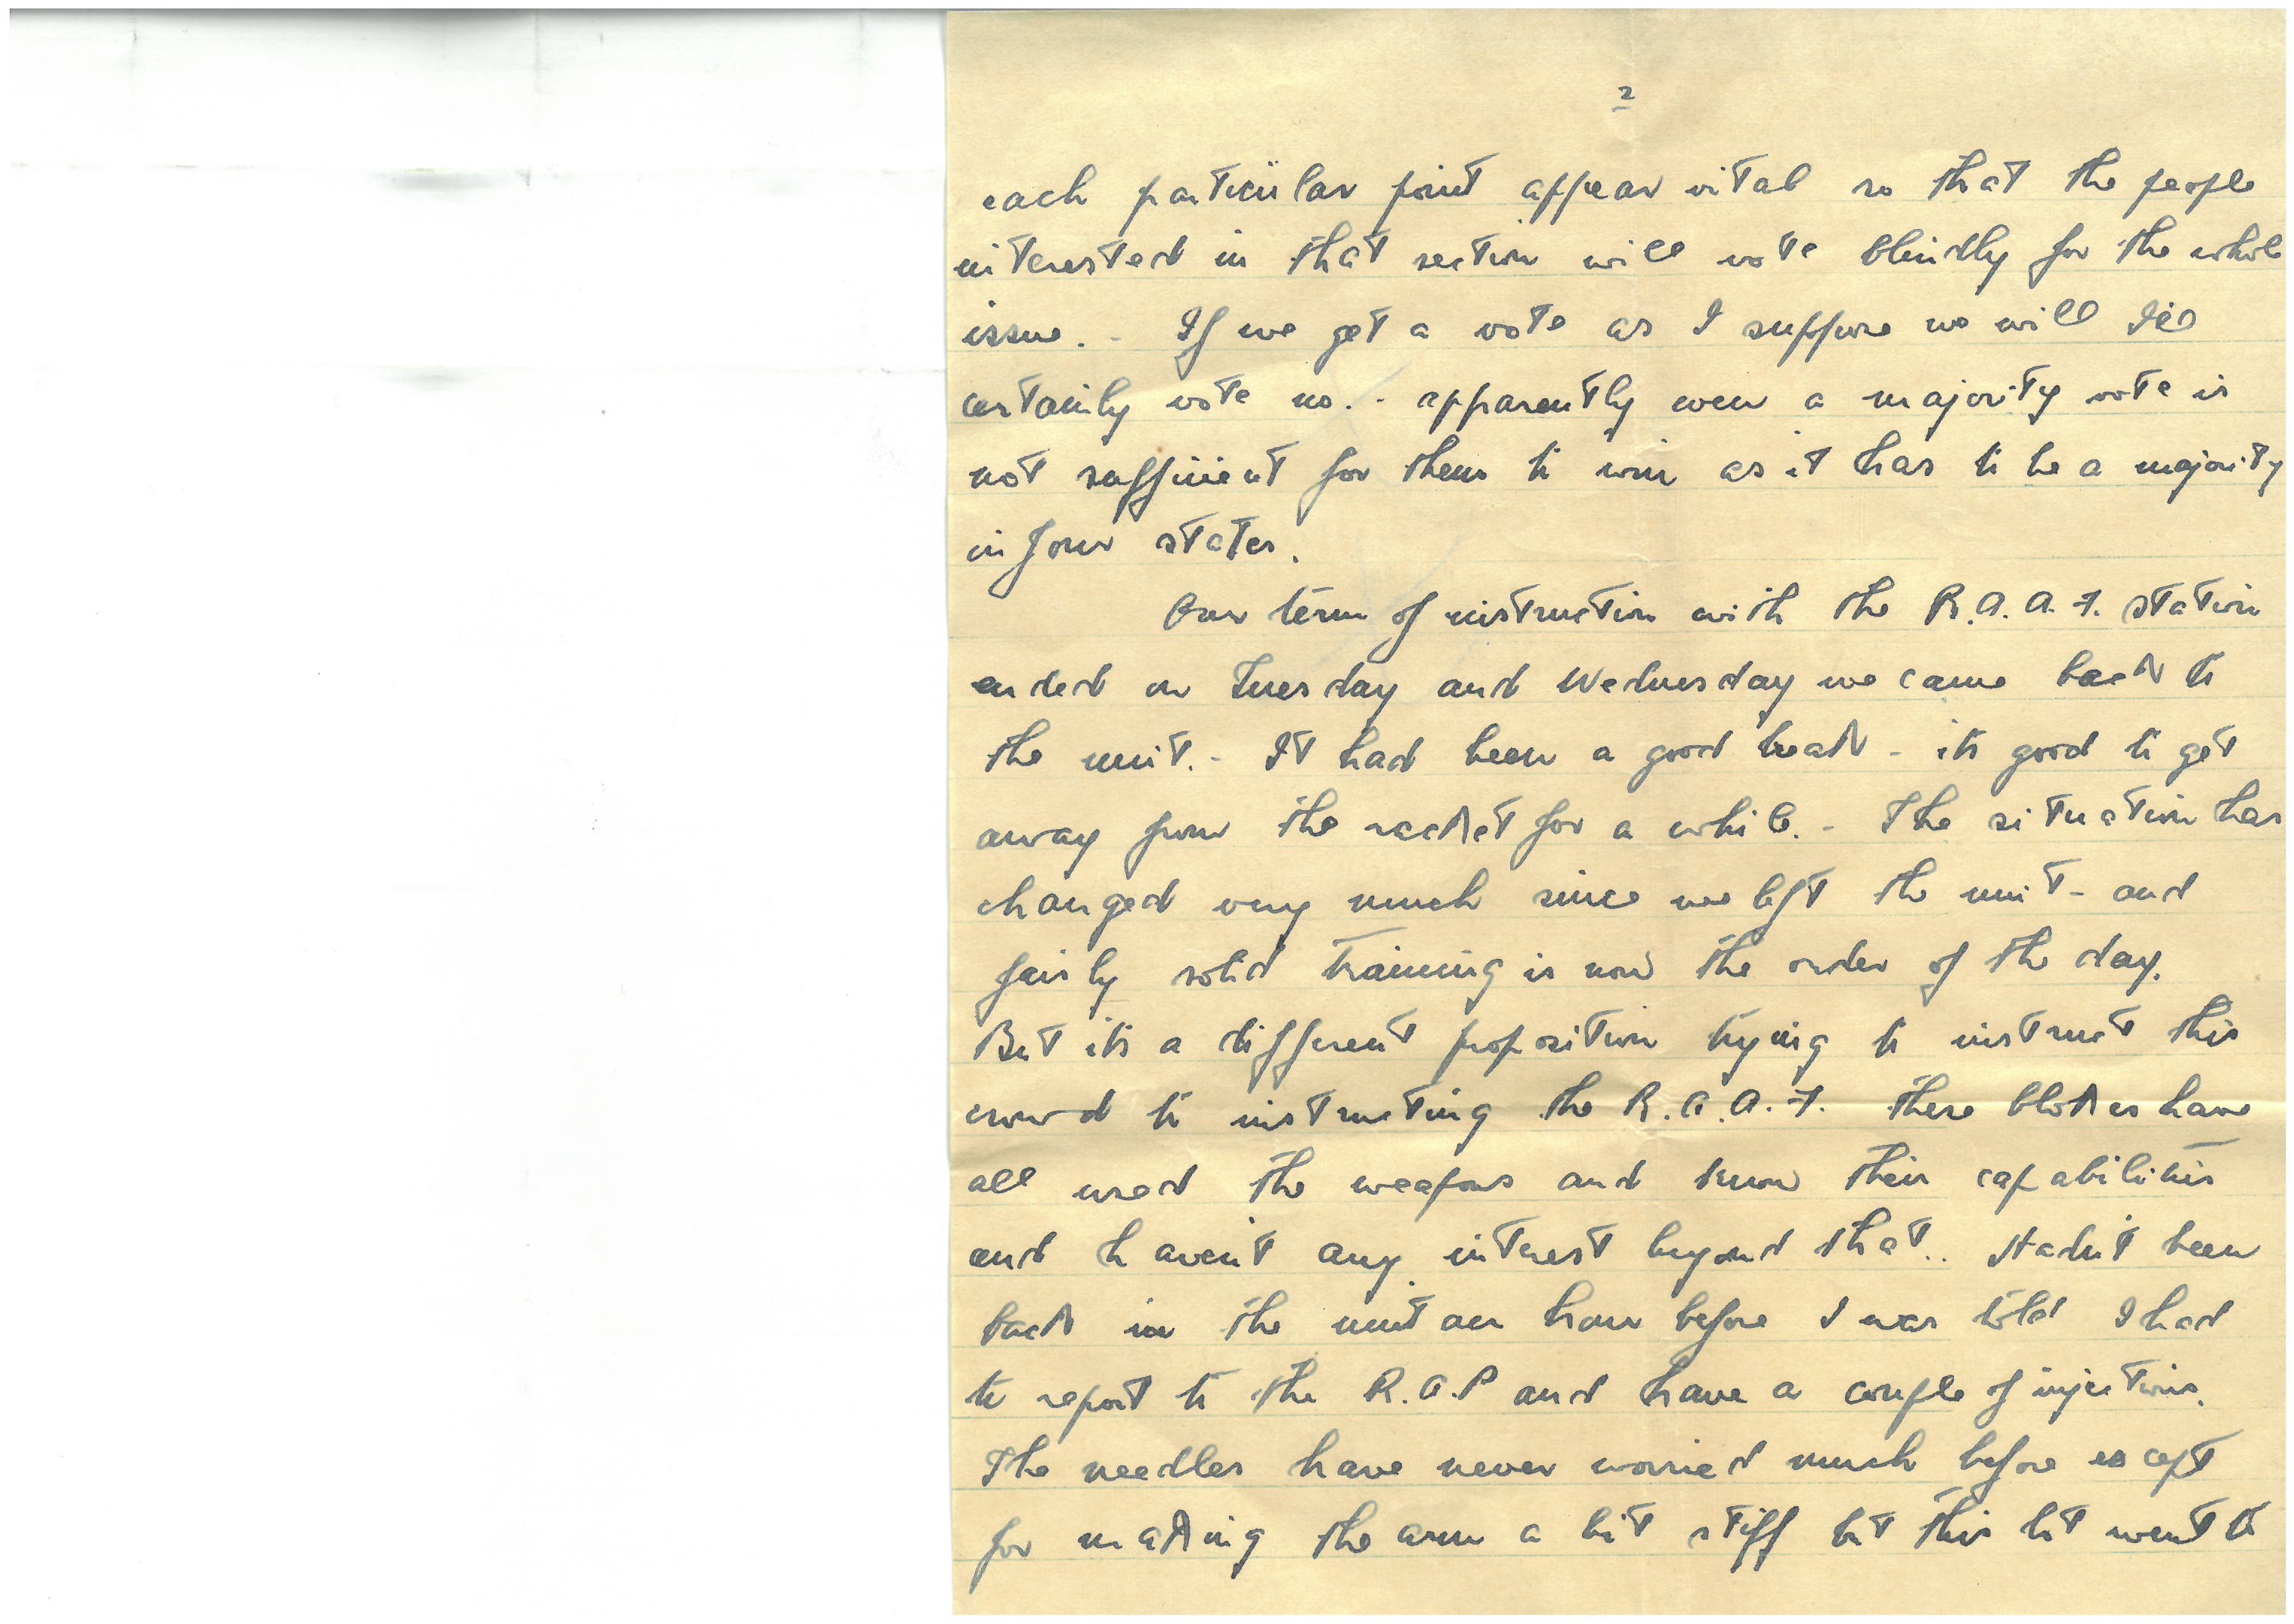 2
each particular point appear vital so that the people
interested in that section will vote blindly for the whole
issue. - If we get a vote as I suppose we will I'll
certainly vote no. - apparently even a majority vote is
not sufficient for them to win as it has to be a majority
in four states.
Our term of instruction with the R.A.A.F. station
ended on Tuesday and Wednesday we came back to
the unit. - It had been a good break - its good to get
away from the racket for a while. - The situation has
changed very much since we left the unit - and
fairly solid training is now the order of the day.
But its a different proposition trying to instruct this
crowd to instructing the R.A.A.F. these blokes have
all used the weapons and know their capabilities
and haven't any interest beyond that.. Hadn't been
back in the unit an hour before I was told I had
to report to the R.A.P and have a couple of injections.
The needles have never worried much before except
for making the arm a bit stiff but this lot went to